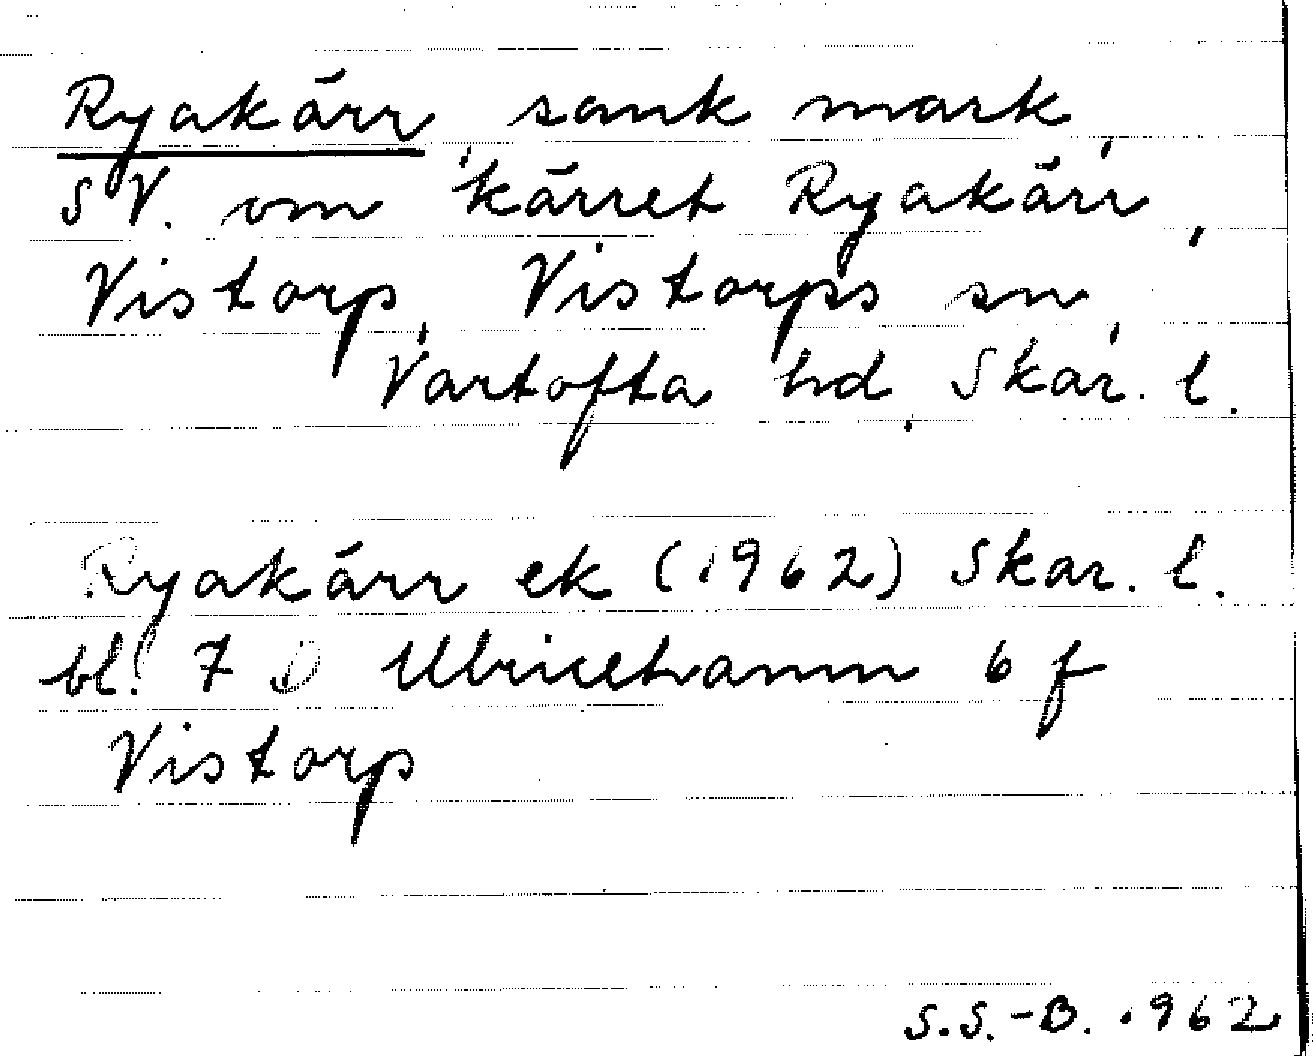 Ryakärr, sank mark,
SV. om kärret Ryakärr,
Vistorp, Vistorps sn,
Vartofta hd, Skar. l.
Ryakärr ek (1962) Skar. l.
bl. 7 D Ulricehamn 6 f
Vistorp
S.S.-B. 1962